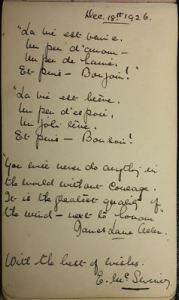 Dec. 18th 1926.
"La vie est vaine.
Un peu d'amour -
Un peu de haine.
Et puis - Bonjour!"
"La vie est brève.
Un peu d'espoir,
Un joli rêve.
Et puis - Bonsoir!"
"You will never do anything in
the world without Courage.
It is the greatest quality of
the mind - next to honour
James Lane Allen.
With the best of wishes.